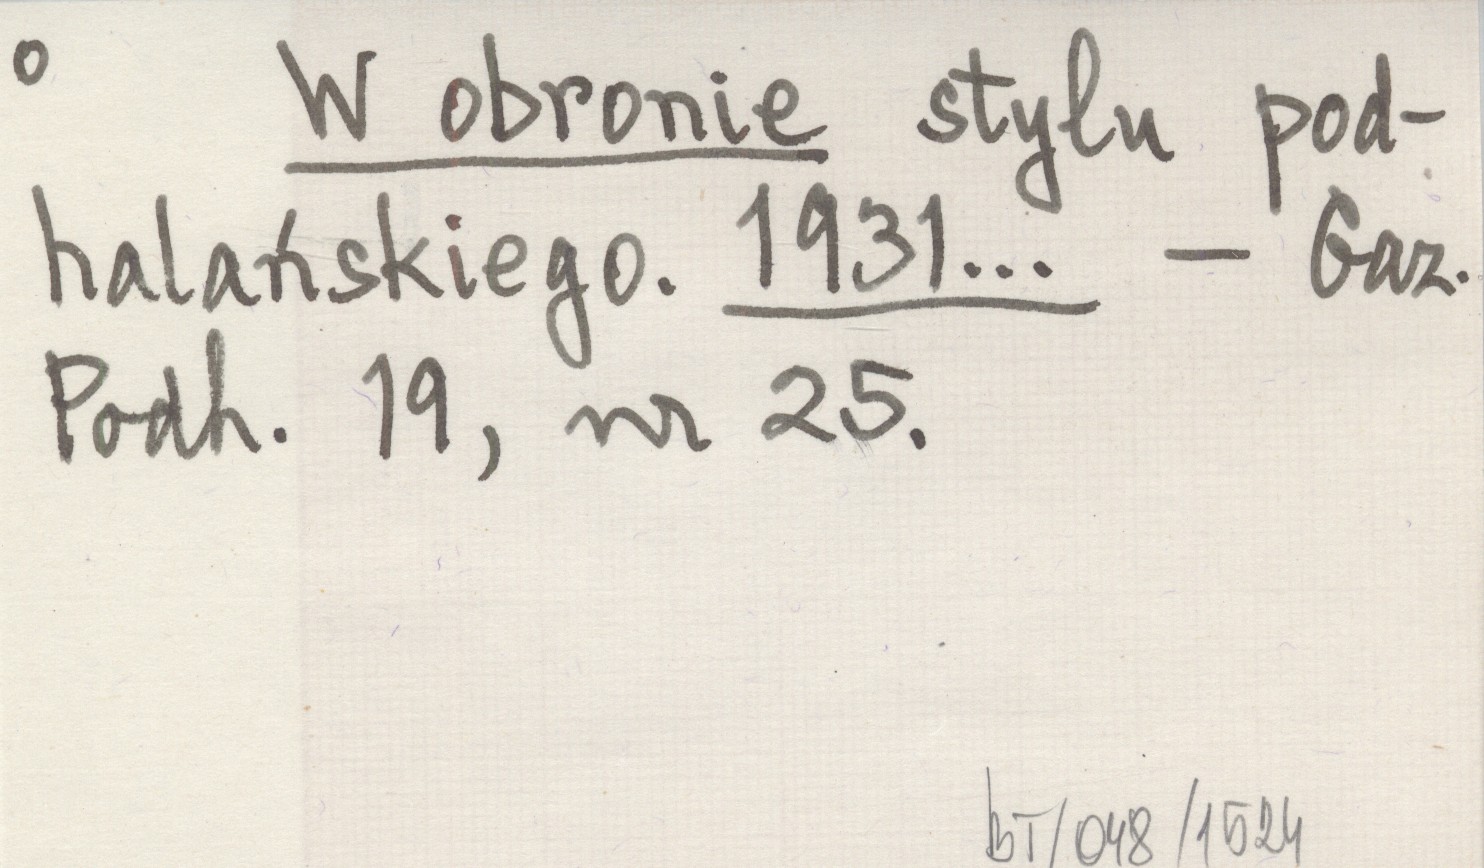 o W obronie stylu pod-
halańskiego. 1931... - Gaz.
Podh. 19, nr 25.
BT/048/1524